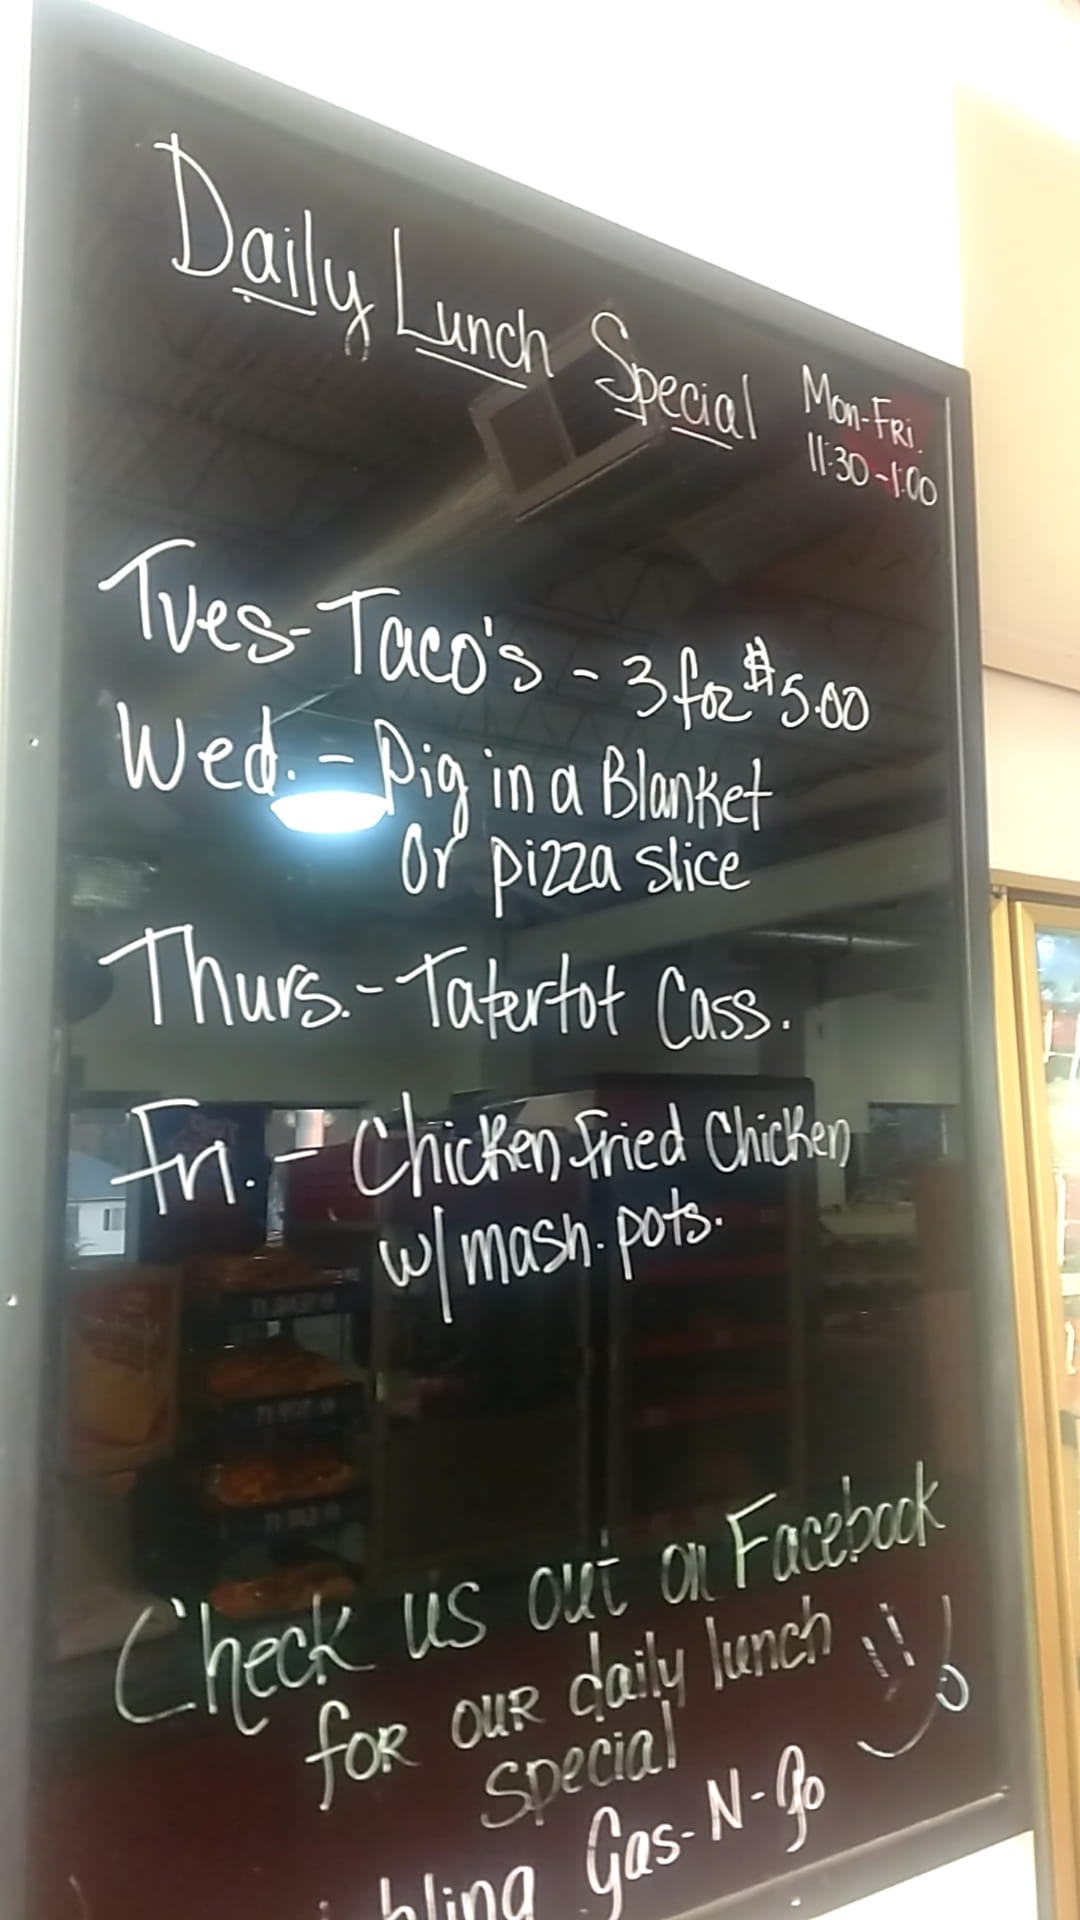 Daily Lunch Special
Mon-Fri.
11:30-1:00
Tues-Taco's - 3 for $5.00
Wed. - Pig in a Blanket
Or pizza slice
Thurs. - Tatertot Cass.
Fri. - Chicken Fried Chicken
w/mash. pots.
Check us out on Facebook
for our daily lunch
special
Gas-N-Go